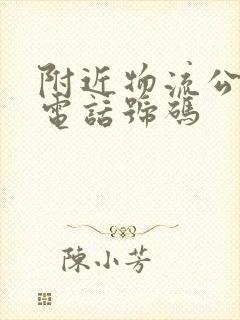 附近物流公
電話號碼
陳小芳